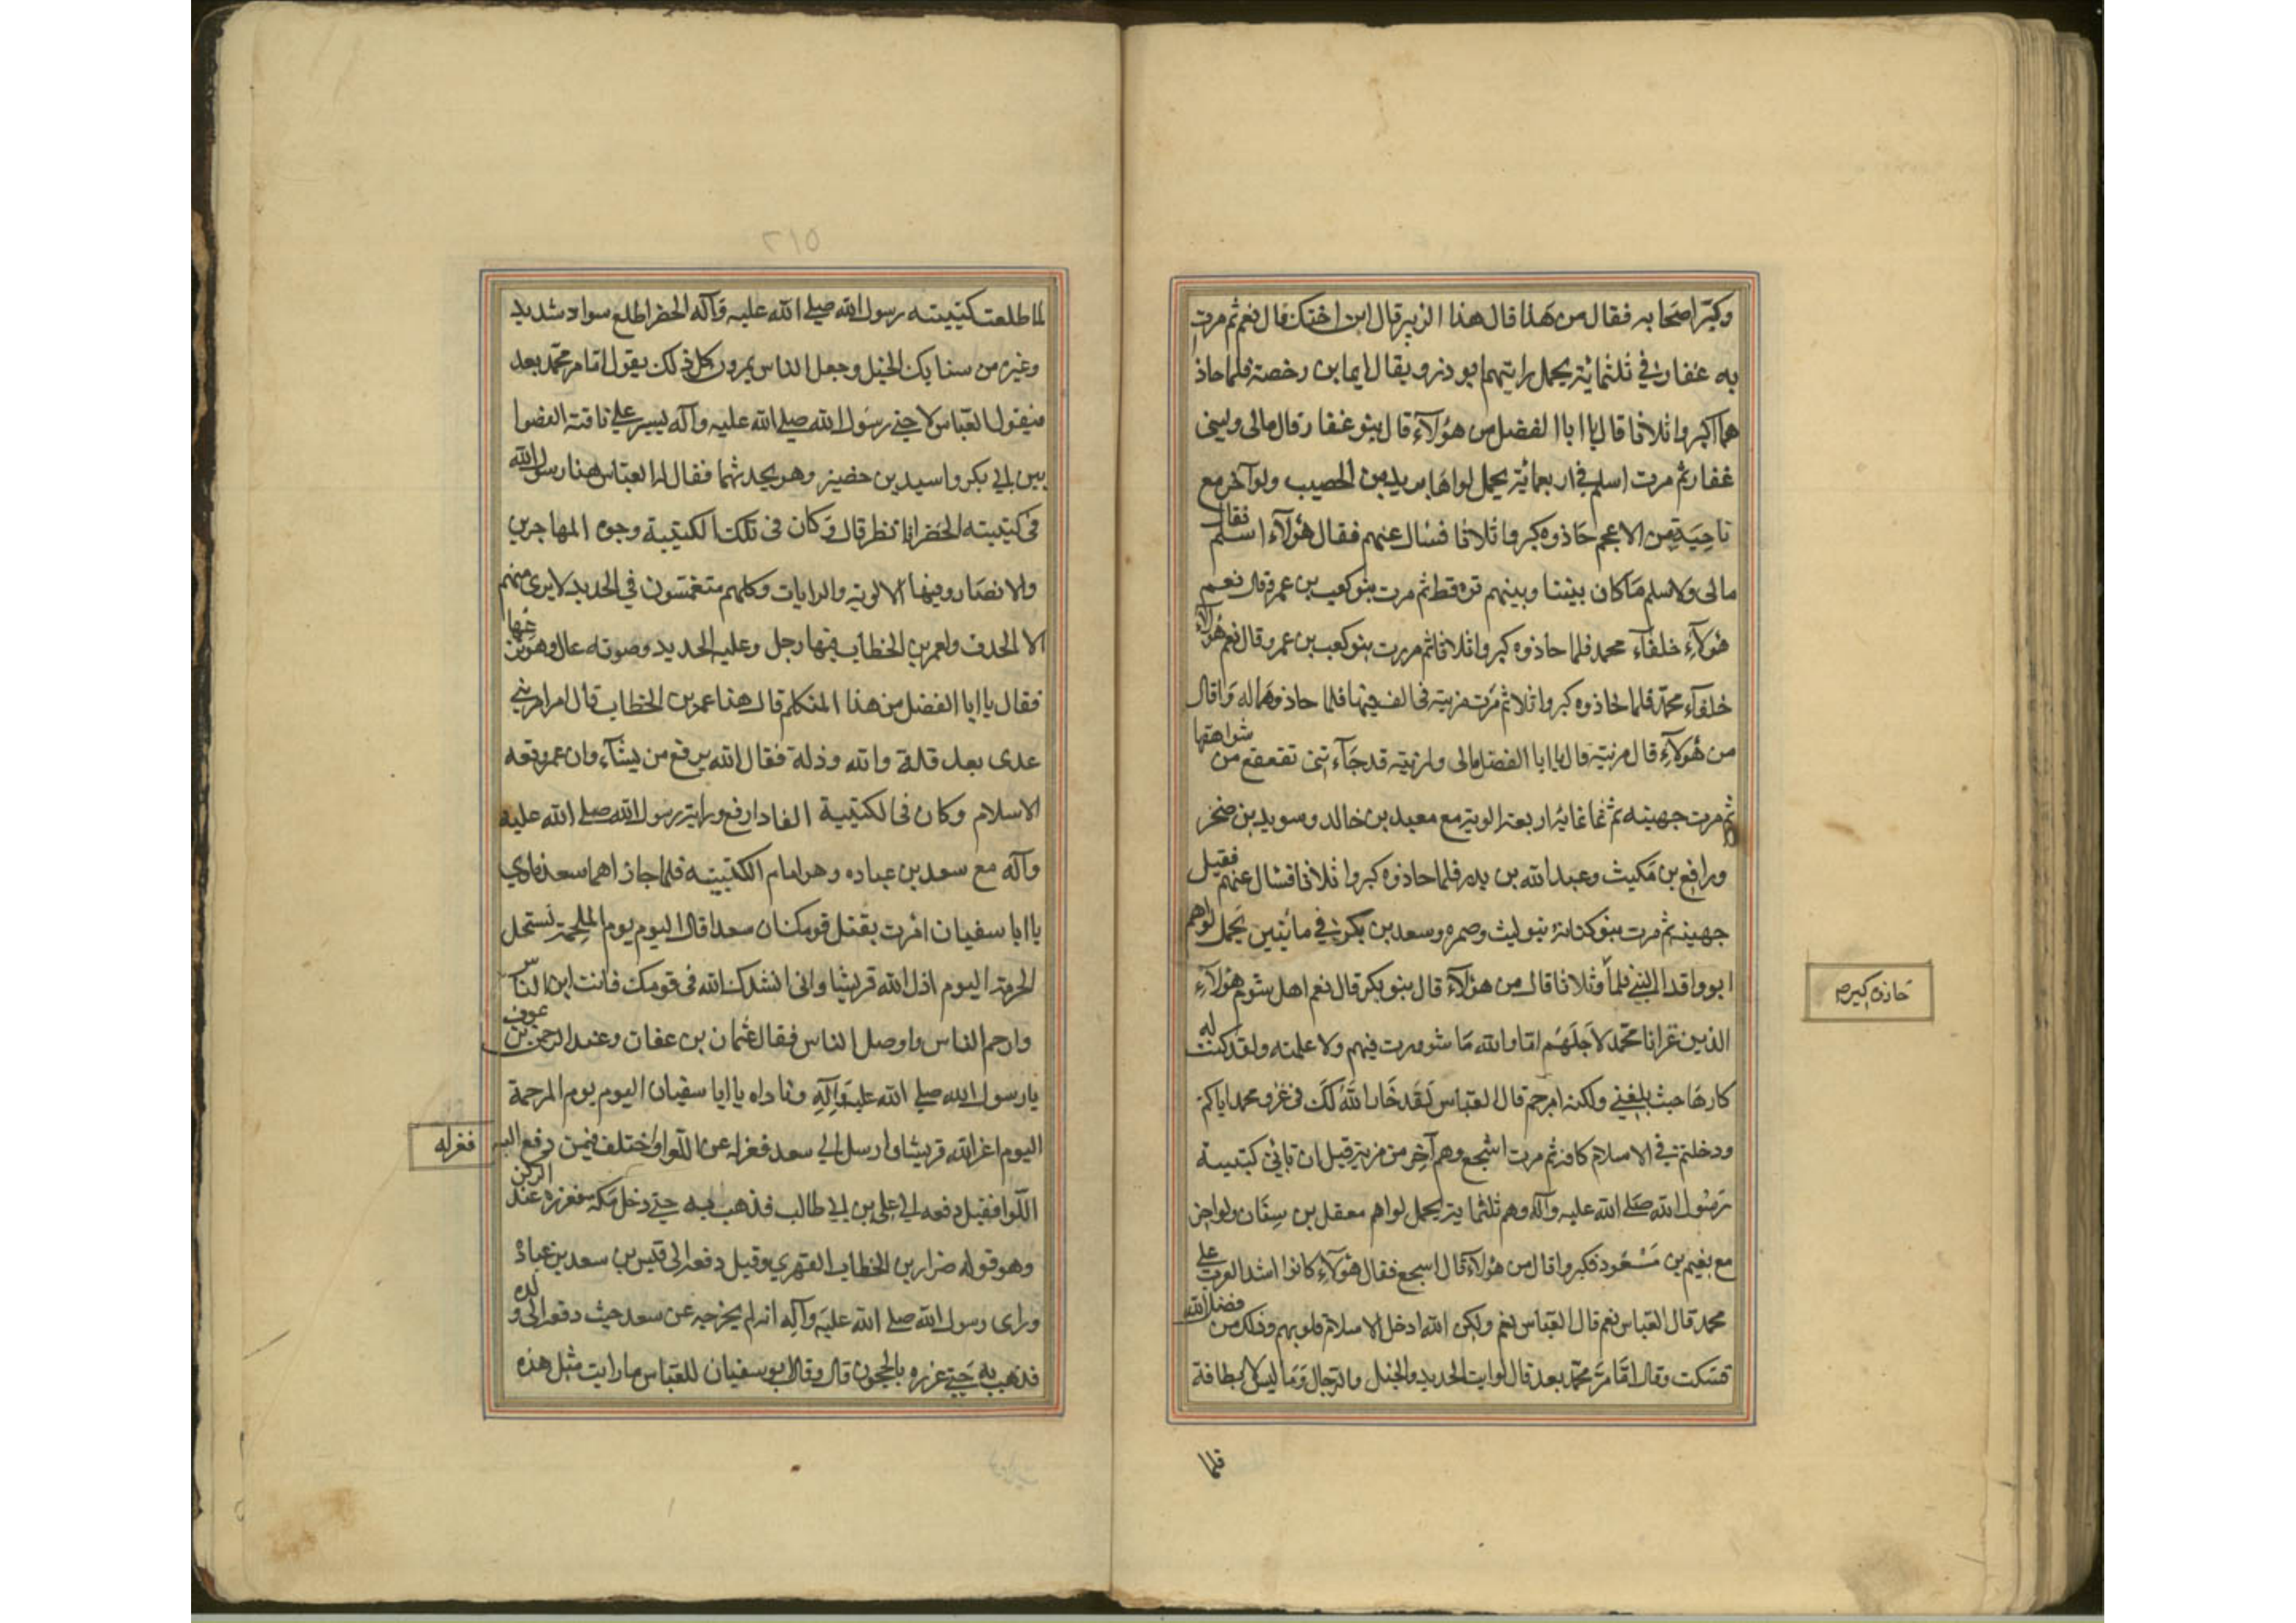 وكبر اصحابه فقال من هذا قال هذا الزبير قال ابن اختك قال نعم ثم مرت
به غفار في ثلثمائة يحمل رايتهم ابو ذر ويقال ايما بن رخصة فلما حاذ
هما اكبروا ثلاثا قال يا ابا الفضل من هؤلاء قال بنو غفار قال مالى ولبنى
غفار ثم مرت اسلم في اربعمائة يحمل لواها بريد بن الحصيب ولوآ آخر مع
ناحية بن الاعجم حاذوه كبروا ثلاثا فسال عنهم فقال هؤلاء اسلم فقال
مالى ولاسلم ما كان بيننا وبينهم تره قط ثم مرت بنو كعب بن عمرو قال نعم
هؤلاء خلفآء محمد فلما حاذوه كبروا ثلاثا ثم مررت بنو كعب بن عمرو قال نعم هؤلاء
خلفآء محمد فلما حاذوه كبروا ثلاثا ثم مرت مزينة فى الف فيها فلما حاذوهما له وا قال
من هؤلاء قال مزينة قال يا ابا الفضل مالى ولمزينة قد جآءتنى تقعقع من شواهقها
ثم مرت جهينه ثم ثمانمائة اربعة الوية مع معبد بن خالد وسويد بن صخر
ورافع بن مكيث وعبد الله بن بدر فلما حاذوه كبروا ثلاثا فسال عنهم فقيل
جهينة ثم مرت بنو كنانة بنو ليث وضمره وسعد بن بكر في مائتين يحمل لواهم
ابو واقد الليثي فلما وثلاثا قال من هؤلاء قال بنو بكر قال نعم اهل شوم هؤلاء
الذين غزانا محمد لاجلهم اما والله ما شوورت فيهم ولا علمته ولقد كنت له
كارها حيث بلغني ولكنه امر حم قال العباس لقد خار الله لك فى غزو محمد اياكم
ودخلتم في الاسلام كافة ثم مرت اشجع وهم آخر من مر به قبل ان تاتي كتيبة
رسول الله صلى الله عليه وآله وهم ثلثمايه يحمل لواهم معقل بن سنان ولوا اخر
مع نعيم بن مسعود فكبروا قال من هؤلاء قال اشجع فقال هؤلاء كانوا اشد العرب على
محمد قال العباس نعم قال العباس نعم ولكن الله ادخل الاسلام قلوبهم وذلك من فضل الله
فسكت وقال اما مر محمد بعد قال لو رايت الحديد والخيل والرجال وما ليس لاحد به طاقة
فلما
حاذوه كبروا
٢١٥
لما طلعت كتيبته رسول الله صلى الله عليه وآله الخضرا طلع سواد شديد
وغبره من سنابك الخيل وجعل الناس يمرون كل ذلك يقول اما مر محمد بعد
فيقول العباس لا حتى رسول الله صلى الله عليه وآله يسير على ناقته القصوا
بين ابي بكر واسيد بن حضير وهو يحدثهما فقال له العباس هذا رسول الله
فى كتيبته الخضرا فانظر قال وكان فى تلك الكتيبة وجوه المهاجرين
والانصار وفيها الالويه والرايات وكلهم متغمسون في الحديد لا يرى منهم
الا الحدق ولعمر بن الخطاب فيها رجل وعليه الحديد وصوته عال وهو يزعها
فقال يا ابا الفضل من هذا المتكلم قال هذا عمر بن الخطاب قال امر امر بنى
عدى بعد قلة والله وذلة فقال الله يرفع من يشآء وان عمر رفعه
الاسلام وكان فى الكتيبة الفا دارع وراية رسول الله صلى الله عليه
وآله مع سعد بن عباده وهو امام الكتيبته فلما جازاهما سعد نادي
يا ابا سفيان امرت بقتل قومك ان سعدا قال اليوم يوم الملحمة تستحل
الحرمة اليوم اذل الله قريشا وانى انشدك الله فى قومك فانت ابر الناس
وارحم الناس واوصل الناس فقال عثمان بن عفان وعبد الرحمن بن عوف
يا رسول الله صلى الله عليه وآله وناداه يا ابا سفيان اليوم يوم المرحمة
اليوم اعز الله قريشا وارسل الي سعد فعزله عن اللوا واختلف فيمن دفع اليه
اللوا فقيل دفعه الي علي بن ابي طالب فذهب به حتى دخل مكه فغرزه عند الركن
وهو قوله ضرار بن الخطاب الفهري وقيل دفعه الى قيس بن سعد بن عباده
وراى رسول الله صلى الله عليه وآله انه لم يخرجه عن سعد حيث دفعه الى ولده
فذهب به حتى غرزه بالحجون قال وقال ابو سفيان للعباس ما رايت مثل هذه
فعزله